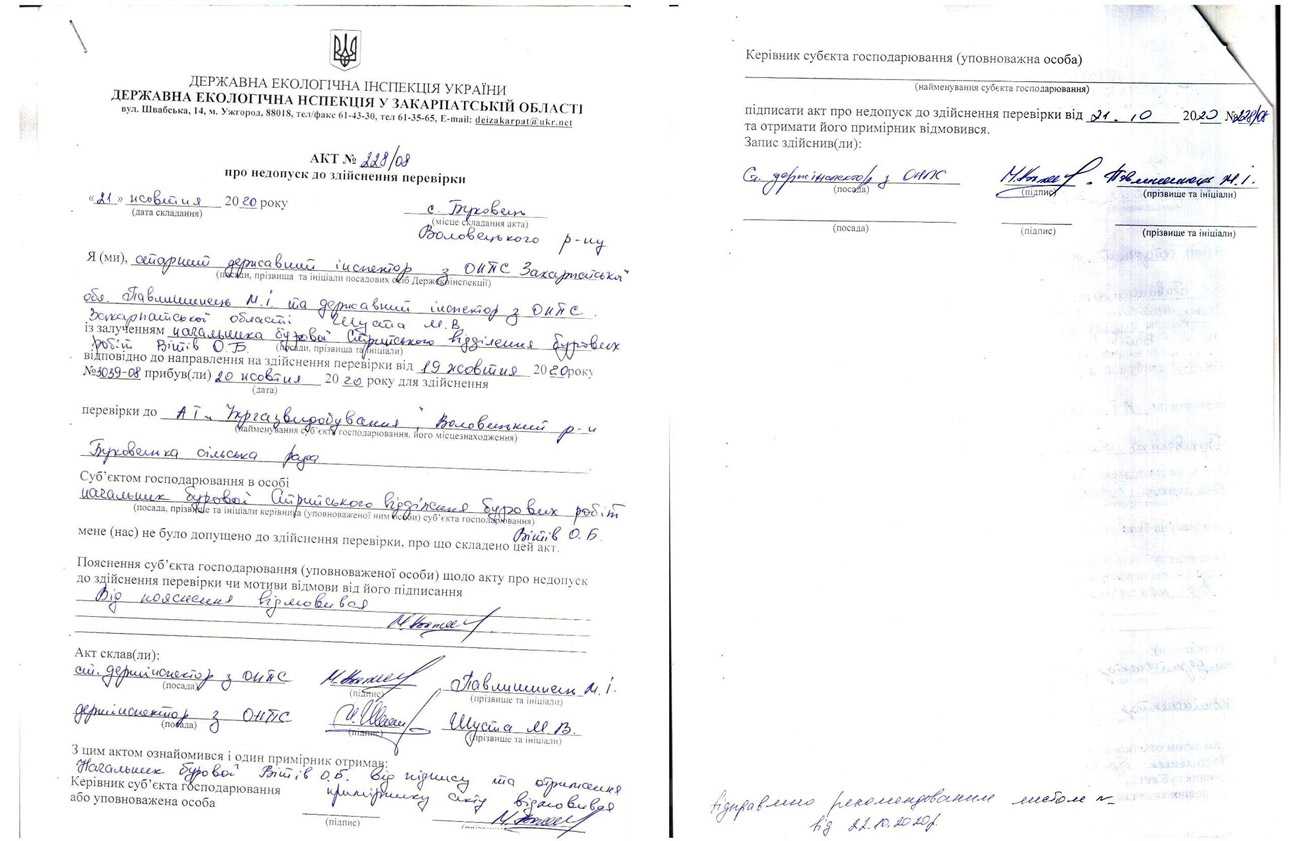 ДЕРЖАВНА ЕКОЛОГІЧНА ІНСПЕКЦІЯ УКРАЇНИ
ДЕРЖАВНА ЕКОЛОГІЧНА НСПЕКЦІЯ У ЗАКАРПАТСЬКІЙ ОБЛАСТІ
вул. Швабська, 14, м. Ужгород, 88018, тел/факс 61-43-30, тел 61-35-65, E-mail: deizakarpat@ukr.net
АКТ № 228/08
про недопуск до здійснення перевірки
«21» жовтня 2020 року
(дата складання)
с. Буковець
(місце складання акта)
Воловецького р-ну
Я (ми), старший державний інспектор з ОНПС Закарпатської
(посади, прізвища та ініціали посадових осіб Держекоінспекції)
обл. Павлишинець М.І. та державний інспектор з ОНПС
Закарпатської області Шуста М.В.
із залученням начальника бурової Стрийського відділення бурових
робіт Вітів О.Б. (посади, прізвища та ініціали)
відповідно до направлення на здійснення перевірки від 19 жовтня 2020 року
№3039-08 прибув(ли) 20 жовтня 2020 року для здійснення
(дата)
перевірки до АТ „Укргазвидобування", Воловецький р-н
(найменування суб'єкта господарювання, його місцезнаходження)
Буковецька сільська рада
Суб'єктом господарювання в особі
начальник бурової Стрийського відділення бурових робіт
(посада, прізвище та ініціали керівника (уповноваженої ним особи) суб'єкта господарювання)
Вітів О.Б.
мене (нас) не було допущено до здійснення перевірки, про що складено цей акт.
Пояснення суб'єкта господарювання (уповноваженої особи) щодо акту про недопуск
до здійснення перевірки чи мотиви відмови від його підписання
Від пояснення відмовився
Акт склав(ли):
ст. держінспектор з ОНПС Павлишинець М.І.
(посада) (підпис) (прізвище та ініціали)
держінспектор з ОНПС Шуста М.В.
(посада) (підпис) (прізвище та ініціали)
З цим актом ознайомився і один примірник отримав:
Начальник бурової Вітів О.Б. від підпису та отримання
Керівник суб'єкта господарювання примірнику акту відмовився
або уповноважена особа
(підпис) (прізвище та ініціали)
Керівник субєкта господарювання (уповноважна особа)
(найменування суб'єкта господарювання)
підписати акт про недопуск до здійснення перевірки від 21.10 2020 №228/08
та отримати його примірник відмовився.
Запис здійснив(ли):
Ст. держінспектор з ОНПС Павлишинець М.І.
(посада) (підпис) (прізвище та ініціали)
(посада) (підпис) (прізвище та ініціали)
Відправлено рекомендованим листом №
від 22.10.2020р.